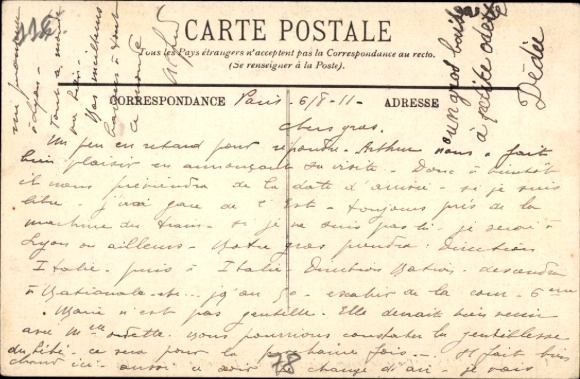 CARTE POSTALE
Tous les Pays étrangers n'acceptent pas la Correspondance au recto.
(Se renseigner à la Poste).
CORRESPONDANCE
ADRESSE
Paris 6/8-11-
Chers gras.
Un peu en retard pour répondre. Arthur nous a fait
bien plaisir en annonçant sa visite - Donc à bientôt
il nous préviendra de la date d'arrivée - si je suis
libre - j'irai gare de l'Est - toujours près de la
machine du train - si je ne suis pas là. je serai à
Lyon ou ailleurs - Votre gras prendra: Direction
Italie - puis à Italie Direction Nation. descendre
à Nationale - et 50 - escalier de la cour - 6ème
. Marie n'est pas gentille. Elle devait bien venir
avec Mlle Odette. nous pourrions constater la gentillesse
du bébé - ce sera pour la prochaine fois - Il fait bien
chaud ici - aussi ce soir de change d'air - je vais
à Lyon -
Tout à moi
ou bien -
Vos meilleurs
baisers à tout
ce monde
un gros baiser
à petite Odette
Dédée
78